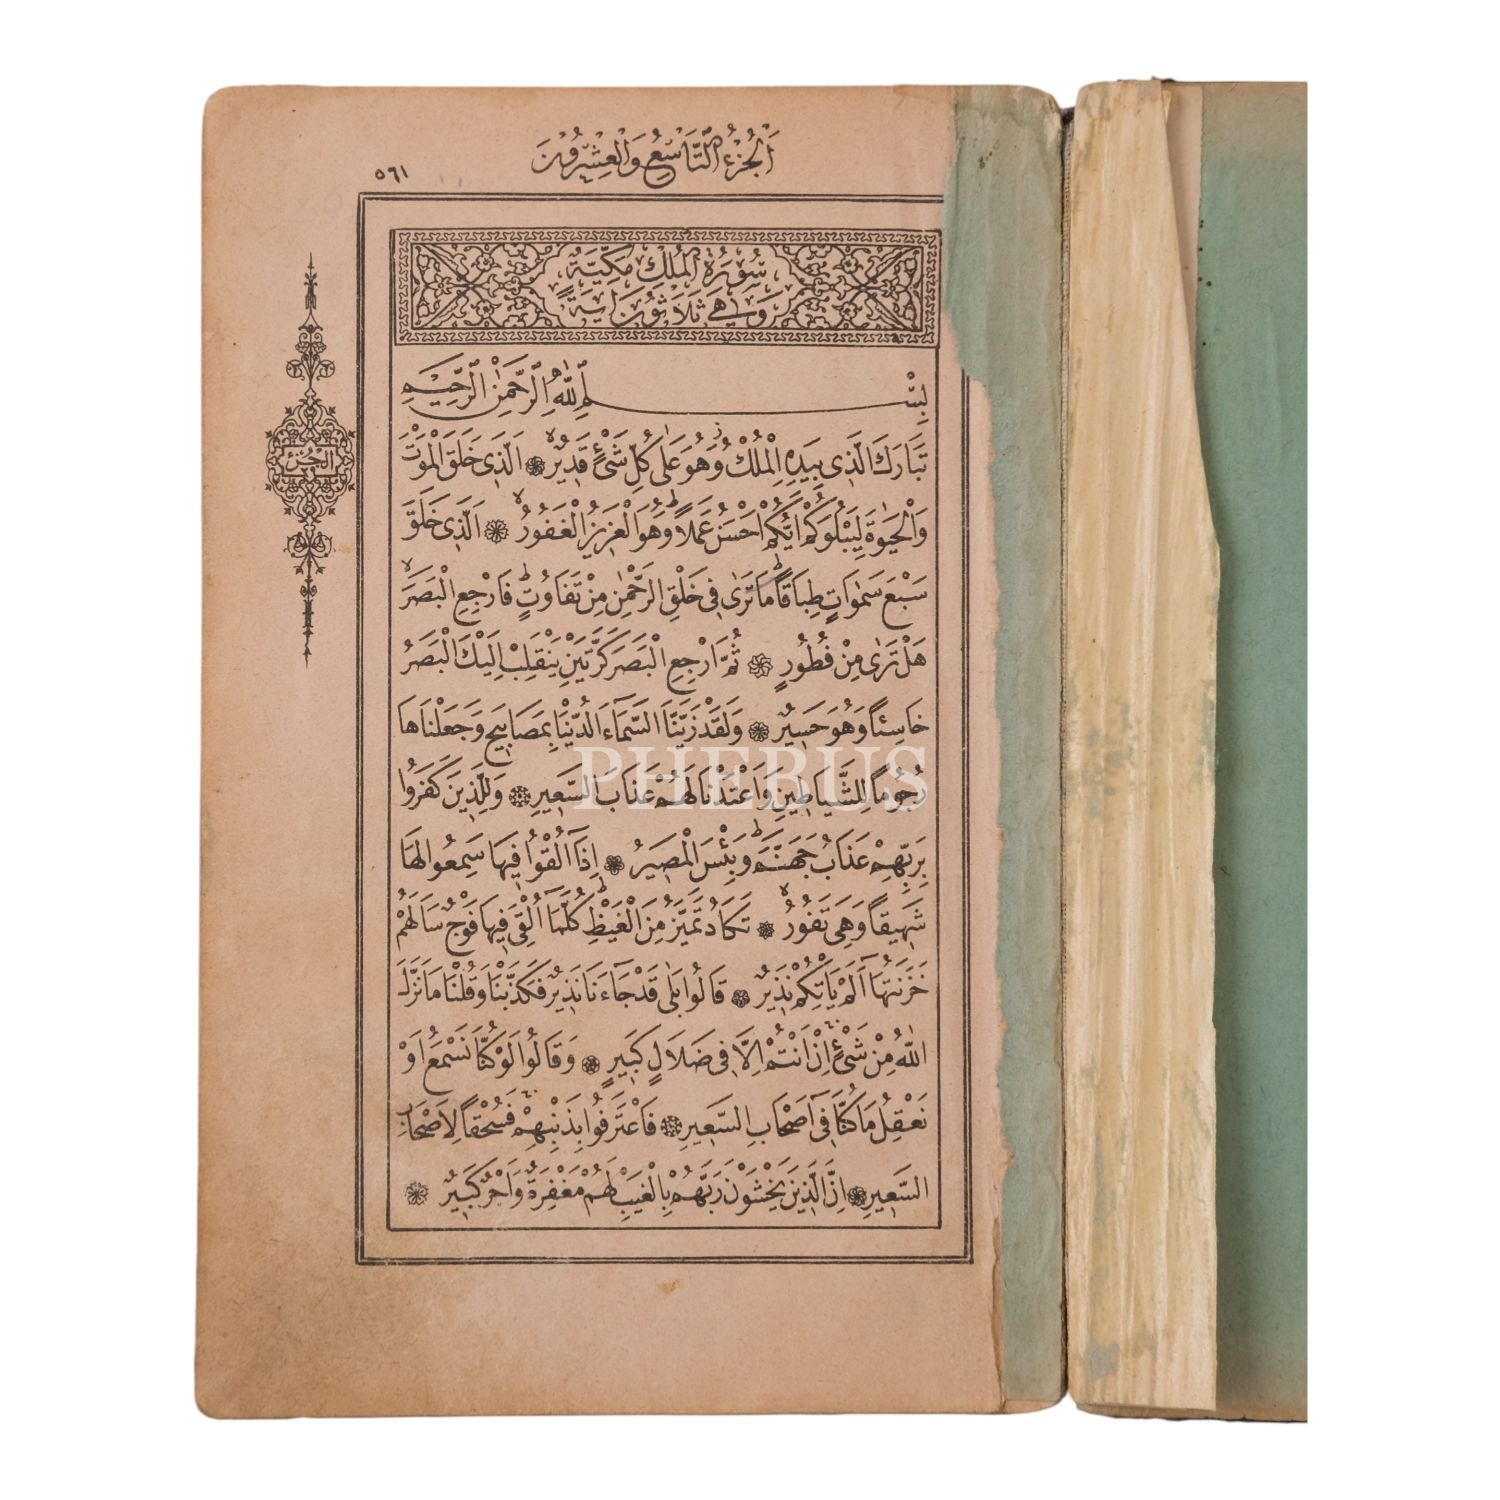 اَلْجُزْءُ التَّاسِعُ وَالْعِشْرُونَ
٥٦١
سُورَةُ الْمُلْكِ مَكِّيَّةٌ
وَهِيَ ثَلَاثُونَ اٰيَةً
الجزء
بِسْمِ اللّٰهِ الرَّحْمٰنِ الرَّحِيمِ
تَبَارَكَ الَّذِى بِيَدِهِ الْمُلْكُ وَهُوَ عَلٰى كُلِّ شَىْءٍ قَدِيرٌ ۞ اَلَّذِى خَلَقَ الْمَوْتَ
وَالْحَيٰوةَ لِيَبْلُوَكُمْ اَيُّكُمْ اَحْسَنُ عَمَلًا وَهُوَ الْعَزِيزُ الْغَفُورُ ۞ اَلَّذِى خَلَقَ
سَبْعَ سَمٰوَاتٍ طِبَاقًا مَا تَرٰى فِى خَلْقِ الرَّحْمٰنِ مِنْ تَفَاوُتٍ فَارْجِعِ الْبَصَرَ
هَلْ تَرٰى مِنْ فُطُورٍ ۞ ثُمَّ ارْجِعِ الْبَصَرَ كَرَّتَيْنِ يَنْقَلِبْ اِلَيْكَ الْبَصَرُ
خَاسِئًا وَهُوَ حَسِيرٌ ۞ وَلَقَدْ زَيَّنَّا السَّمَاءَ الدُّنْيَا بِمَصَابِيحَ وَجَعَلْنَاهَا
رُجُومًا لِلشَّيَاطِينِ وَاَعْتَدْنَا لَهُمْ عَذَابَ السَّعِيرِ ۞ وَلِلَّذِينَ كَفَرُوا
بِرَبِّهِمْ عَذَابُ جَهَنَّمَ وَبِئْسَ الْمَصِيرُ ۞ اِذَا اُلْقُوا فِيهَا سَمِعُوا لَهَا
شَهِيقًا وَهِىَ تَفُورُ ۞ تَكَادُ تَمَيَّزُ مِنَ الْغَيْظِ كُلَّمَا اُلْقِىَ فِيهَا فَوْجٌ سَاَلَهُمْ
خَزَنَتُهَا اَلَمْ يَاْتِكُمْ نَذِيرٌ ۞ قَالُوا بَلٰى قَدْ جَاءَنَا نَذِيرٌ فَكَذَّبْنَا وَقُلْنَا مَا نَزَّلَ
اللّٰهُ مِنْ شَىْءٍ اِنْ اَنْتُمْ اِلَّا فِى ضَلَالٍ كَبِيرٍ ۞ وَقَالُوا لَوْ كُنَّا نَسْمَعُ اَوْ
نَعْقِلُ مَا كُنَّا فِى اَصْحَابِ السَّعِيرِ ۞ فَاعْتَرَفُوا بِذَنْبِهِمْ فَسُحْقًا لِاَصْحَابِ
السَّعِيرِ ۞ اِنَّ الَّذِينَ يَخْشَوْنَ رَبَّهُمْ بِالْغَيْبِ لَهُمْ مَغْفِرَةٌ وَاَجْرٌ كَبِيرٌ ۞
PHEBUS